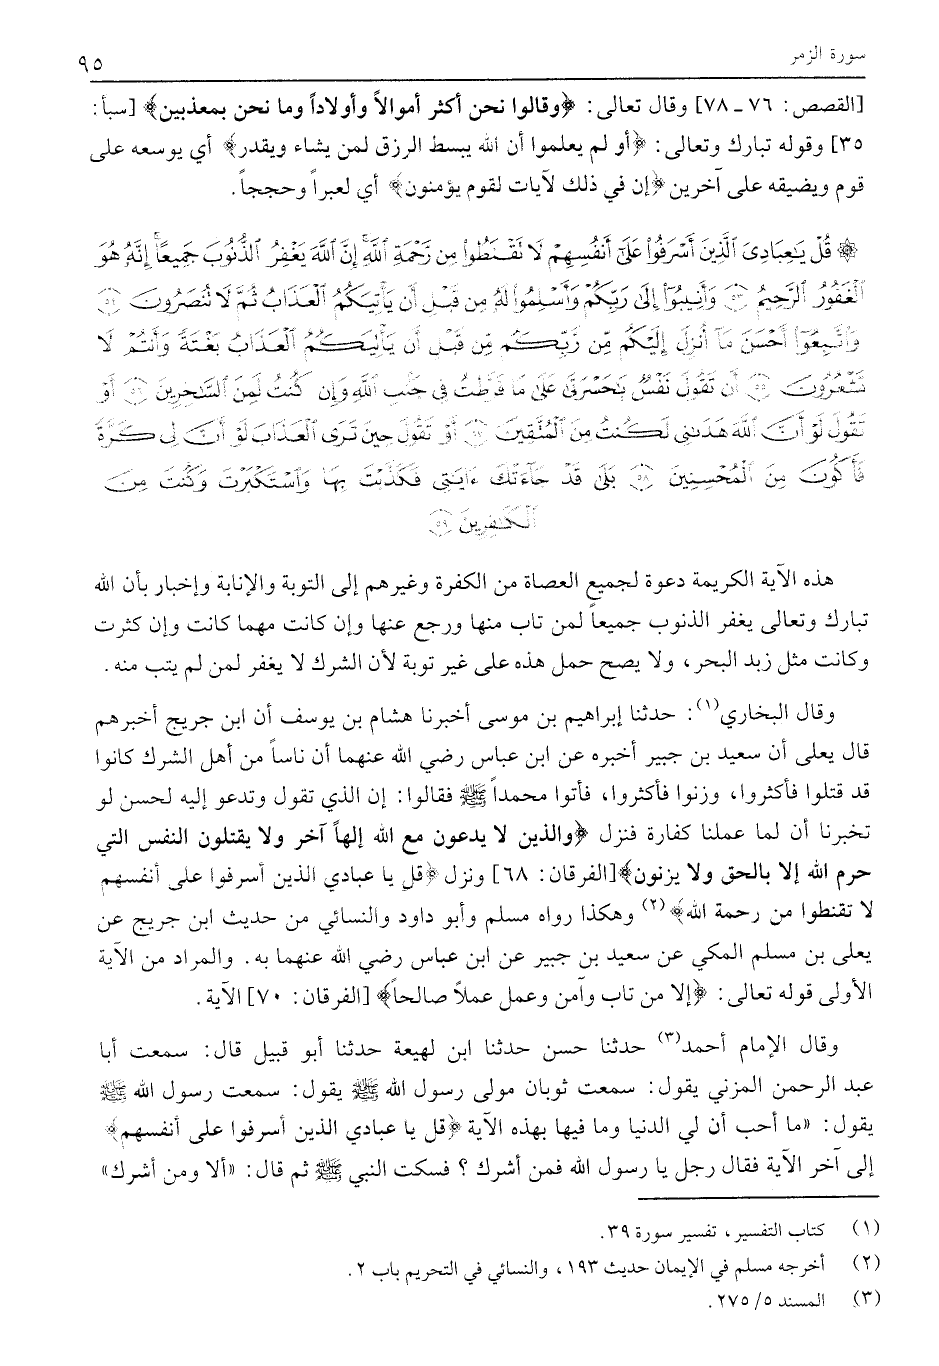 سورة الزمر
٩٥
[القصص: ٧٦ـ٧٨] وقال تعالى: ﴿وقالوا نحن أكثر أموالاً وأولاداً وما نحن بمعذبين﴾ [سبأ:
٣٥] وقوله تبارك وتعالى: ﴿أو لم يعلموا أن الله يبسط الرزق لمن يشاء ويقدر﴾ أي يوسعه على
قوم ويضيقه على آخرين ﴿إن في ذلك لآيات لقوم يؤمنون﴾ أي لعبراً وحججاً.
۞ قُلْ يَٰعِبَادِىَ ٱلَّذِينَ أَسْرَفُوا۟ عَلَىٰٓ أَنفُسِهِمْ لَا تَقْنَطُوا۟ مِن رَّحْمَةِ ٱللَّهِ إِنَّ ٱللَّهَ يَغْفِرُ ٱلذُّنُوبَ جَمِيعًا إِنَّهُۥ هُوَ
ٱلْغَفُورُ ٱلرَّحِيمُ ٥٣ وَأَنِيبُوٓا۟ إِلَىٰ رَبِّكُمْ وَأَسْلِمُوا۟ لَهُۥ مِن قَبْلِ أَن يَأْتِيَكُمُ ٱلْعَذَابُ ثُمَّ لَا تُنصَرُونَ ٥٤
وَٱتَّبِعُوٓا۟ أَحْسَنَ مَآ أُنزِلَ إِلَيْكُم مِّن رَّبِّكُم مِّن قَبْلِ أَن يَأْتِيَكُمُ ٱلْعَذَابُ بَغْتَةً وَأَنتُمْ لَا
تَشْعُرُونَ ٥٥ أَن تَقُولَ نَفْسٌ يَٰحَسْرَتَىٰ عَلَىٰ مَا فَرَّطتُ فِى جَنۢبِ ٱللَّهِ وَإِن كُنتُ لَمِنَ ٱلسَّٰخِرِينَ ٥٦ أَوْ
تَقُولَ لَوْ أَنَّ ٱللَّهَ هَدَىٰنِى لَكُنتُ مِنَ ٱلْمُتَّقِينَ ٥٧ أَوْ تَقُولَ حِينَ تَرَى ٱلْعَذَابَ لَوْ أَنَّ لِى كَرَّةً
فَأَكُونَ مِنَ ٱلْمُحْسِنِينَ ٥٨ بَلَىٰ قَدْ جَآءَتْكَ ءَايَٰتِى فَكَذَّبْتَ بِهَا وَٱسْتَكْبَرْتَ وَكُنتَ مِنَ
ٱلْكَٰفِرِينَ ٥٩
هذه الآية الكريمة دعوة لجميع العصاة من الكفرة وغيرهم إلى التوبة والإنابة وإخبار بأن الله
تبارك وتعالى يغفر الذنوب جميعاً لمن تاب منها ورجع عنها وإن كانت مهما كانت وإن كثرت
وكانت مثل زبد البحر، ولا يصح حمل هذه على غير توبة لأن الشرك لا يغفر لمن لم يتب منه.
وقال البخاري(١): حدثنا إبراهيم بن موسى أخبرنا هشام بن يوسف أن ابن جريج أخبرهم
قال يعلى أن سعيد بن جبير أخبره عن ابن عباس رضي الله عنهما أن ناساً من أهل الشرك كانوا
قد قتلوا فأكثروا، وزنوا فأكثروا، فأتوا محمداً ﷺ فقالوا: إن الذي تقول وتدعو إليه لحسن لو
تخبرنا أن لما عملنا كفارة فنزل ﴿والذين لا يدعون مع الله إلهاً آخر ولا يقتلون النفس التي
حرم الله إلا بالحق ولا يزنون﴾[الفرقان: ٦٨] ونزل ﴿قل يا عبادي الذين أسرفوا على أنفسهم
لا تقنطوا من رحمة الله﴾(٢) وهكذا رواه مسلم وأبو داود والنسائي من حديث ابن جريج عن
يعلى بن مسلم المكي عن سعيد بن جبير عن ابن عباس رضي الله عنهما به. والمراد من الآية
الأولى قوله تعالى: ﴿إلا من تاب وآمن وعمل عملاً صالحاً﴾ [الفرقان: ٧٠] الآية.
وقال الإمام أحمد(٣) حدثنا حسن حدثنا ابن لهيعة حدثنا أبو قبيل قال: سمعت أبا
عبد الرحمن المزني يقول: سمعت ثوبان مولى رسول الله ﷺ يقول: سمعت رسول الله ﷺ
يقول: «ما أحب أن لي الدنيا وما فيها بهذه الآية ﴿قل يا عبادي الذين أسرفوا على أنفسهم﴾
إلى آخر الآية فقال رجل يا رسول الله فمن أشرك ؟ فسكت النبي ﷺ ثم قال: «ألا ومن أشرك»
(١) كتاب التفسير، تفسير سورة ٣٩.
(٢) أخرجه مسلم في الإيمان حديث ١٩٣، والنسائي في التحريم باب ٢.
(٣) المسند ٥/ ٢٧٥.